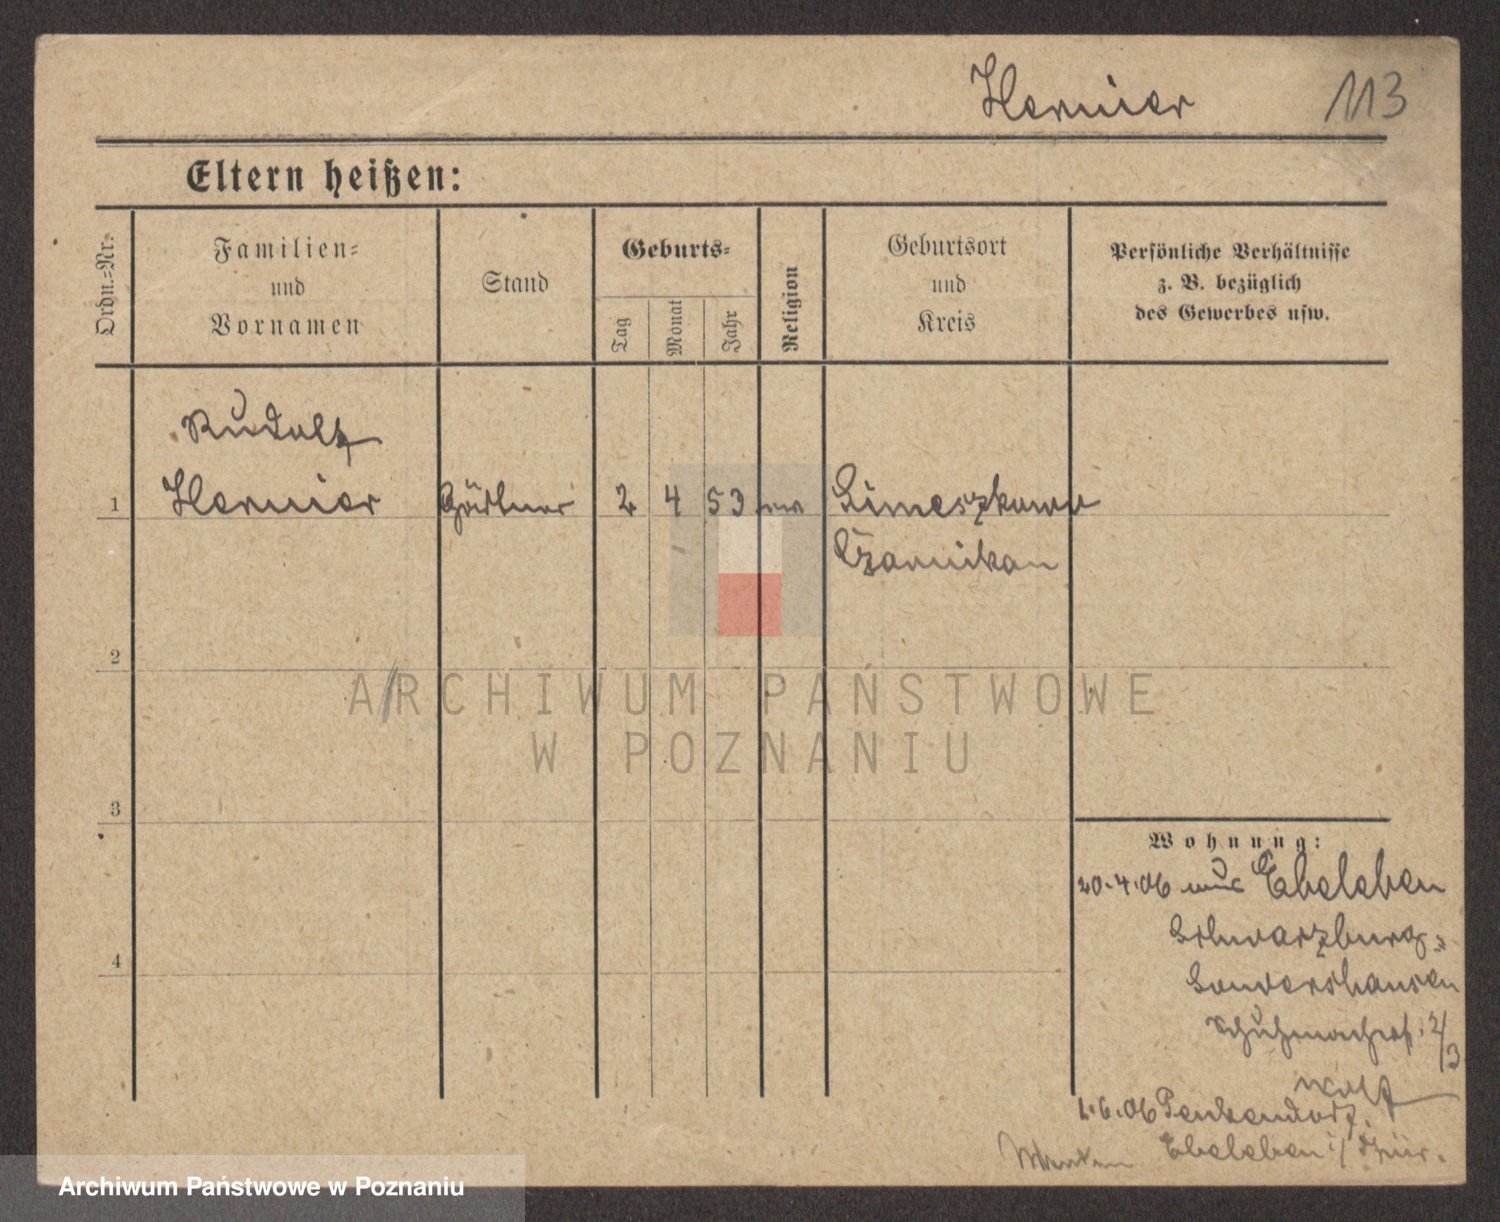 Hernier 113
Eltern heißen:
Ordn.-Nr.
Familien-
und
Vornamen
Stand
Geburts-
Tag
Monat
Jahr
Religion
Geburtsort
und
Kreis
Persönliche Verhältnisse
z. B. bezüglich
des Gewerbes usw.
Rudolf
1 Hernier Gärtner 2 4 53
Czarnikau
2
ARCHIWUM PAŃSTWOWE
W POZNANIU
3
Wohnung:
20.4.06 aus Ebeleben
Schwarzburg-
Sondershausen
Schuhmacherstr. 2/3
Wolf
1.6.06
Ebeleben i/Thür.
4
Archiwum Państwowe w Poznaniu